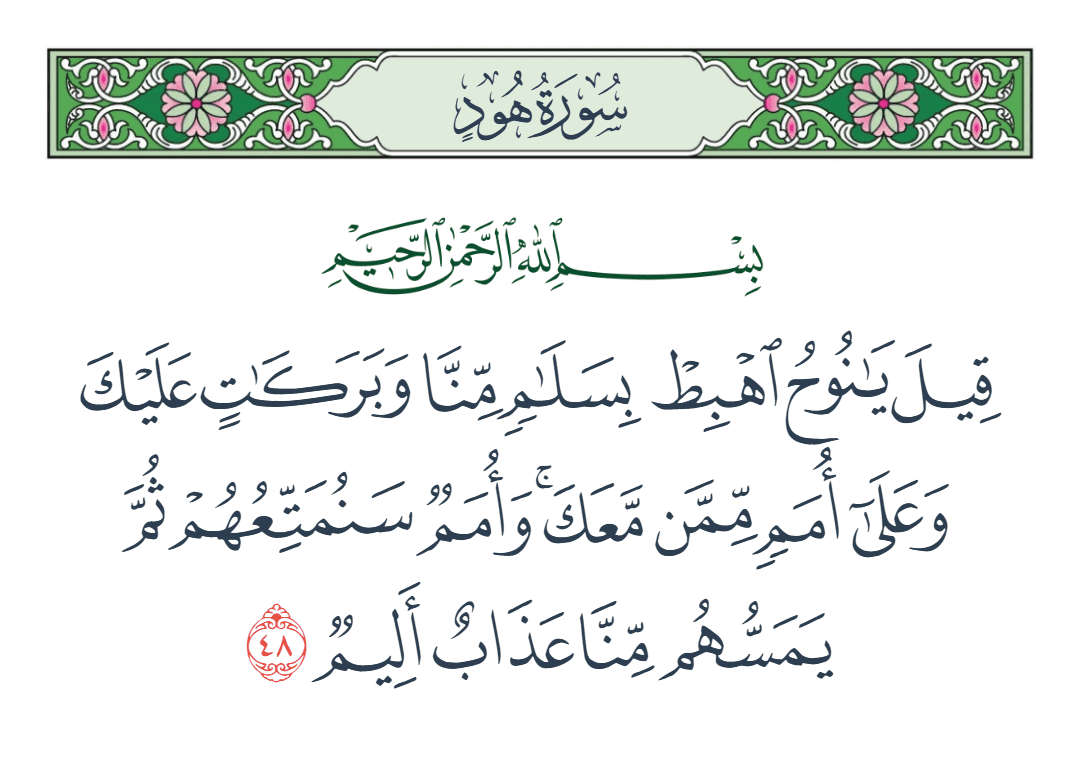 سُورَةُ هُودٍ
بِسْمِ ٱللَّهِ ٱلرَّحْمَٰنِ ٱلرَّحِيمِ
قِيلَ يَٰنُوحُ ٱهْبِطْ بِسَلَٰمٍ مِّنَّا وَبَرَكَٰتٍ عَلَيْكَ
وَعَلَىٰٓ أُمَمٍ مِّمَّن مَّعَكَ ۚ وَأُمَمٌ سَنُمَتِّعُهُمْ ثُمَّ
يَمَسُّهُم مِّنَّا عَذَابٌ أَلِيمٌ ٤٨